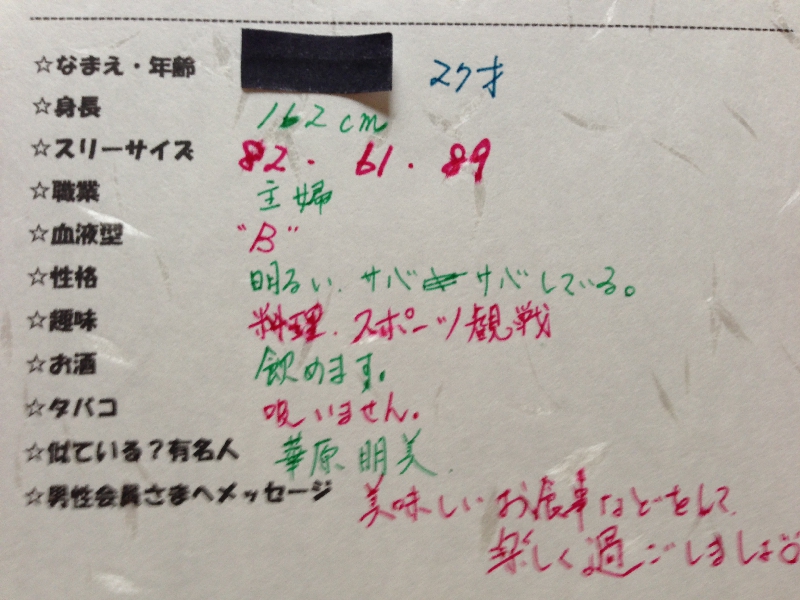 ☆なまえ・年齢 27才
☆身長 162cm
☆スリーサイズ 82. 61. 89
☆職業 主婦
☆血液型 "B"
☆性格 明るい、サバサバしている。
☆趣味 料理、スポーツ観戦
☆お酒 飲めます。
☆タバコ 吸いません。
☆似ている?有名人 華原朋美
☆男性会員さまへメッセージ 美味しいお食事などをして
楽しく過ごしましょう